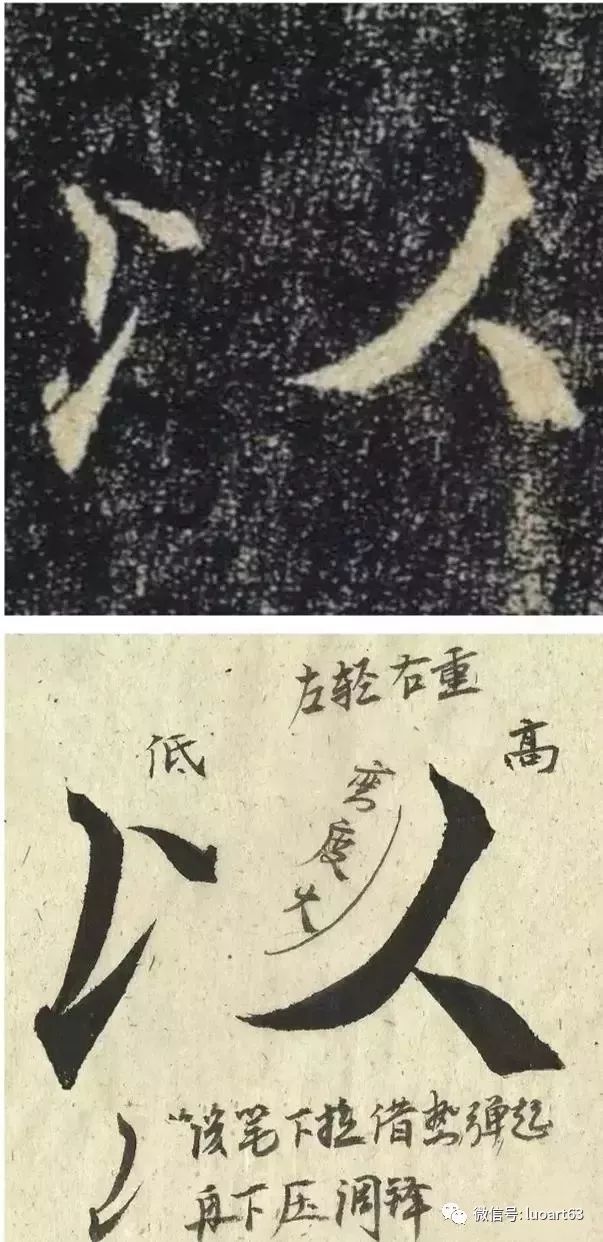 以
左轻右重
低
高
弯度大
以
"後笔下拉借势弹起
再下压调锋
微信号: luoart63